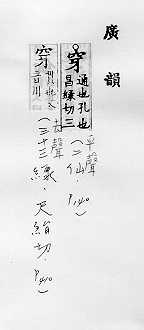 廣韻
穿 通也孔也
昌緣切三
平聲
(二仙, P140)
穿
去聲
(三十三線, 尺絹切, P410)